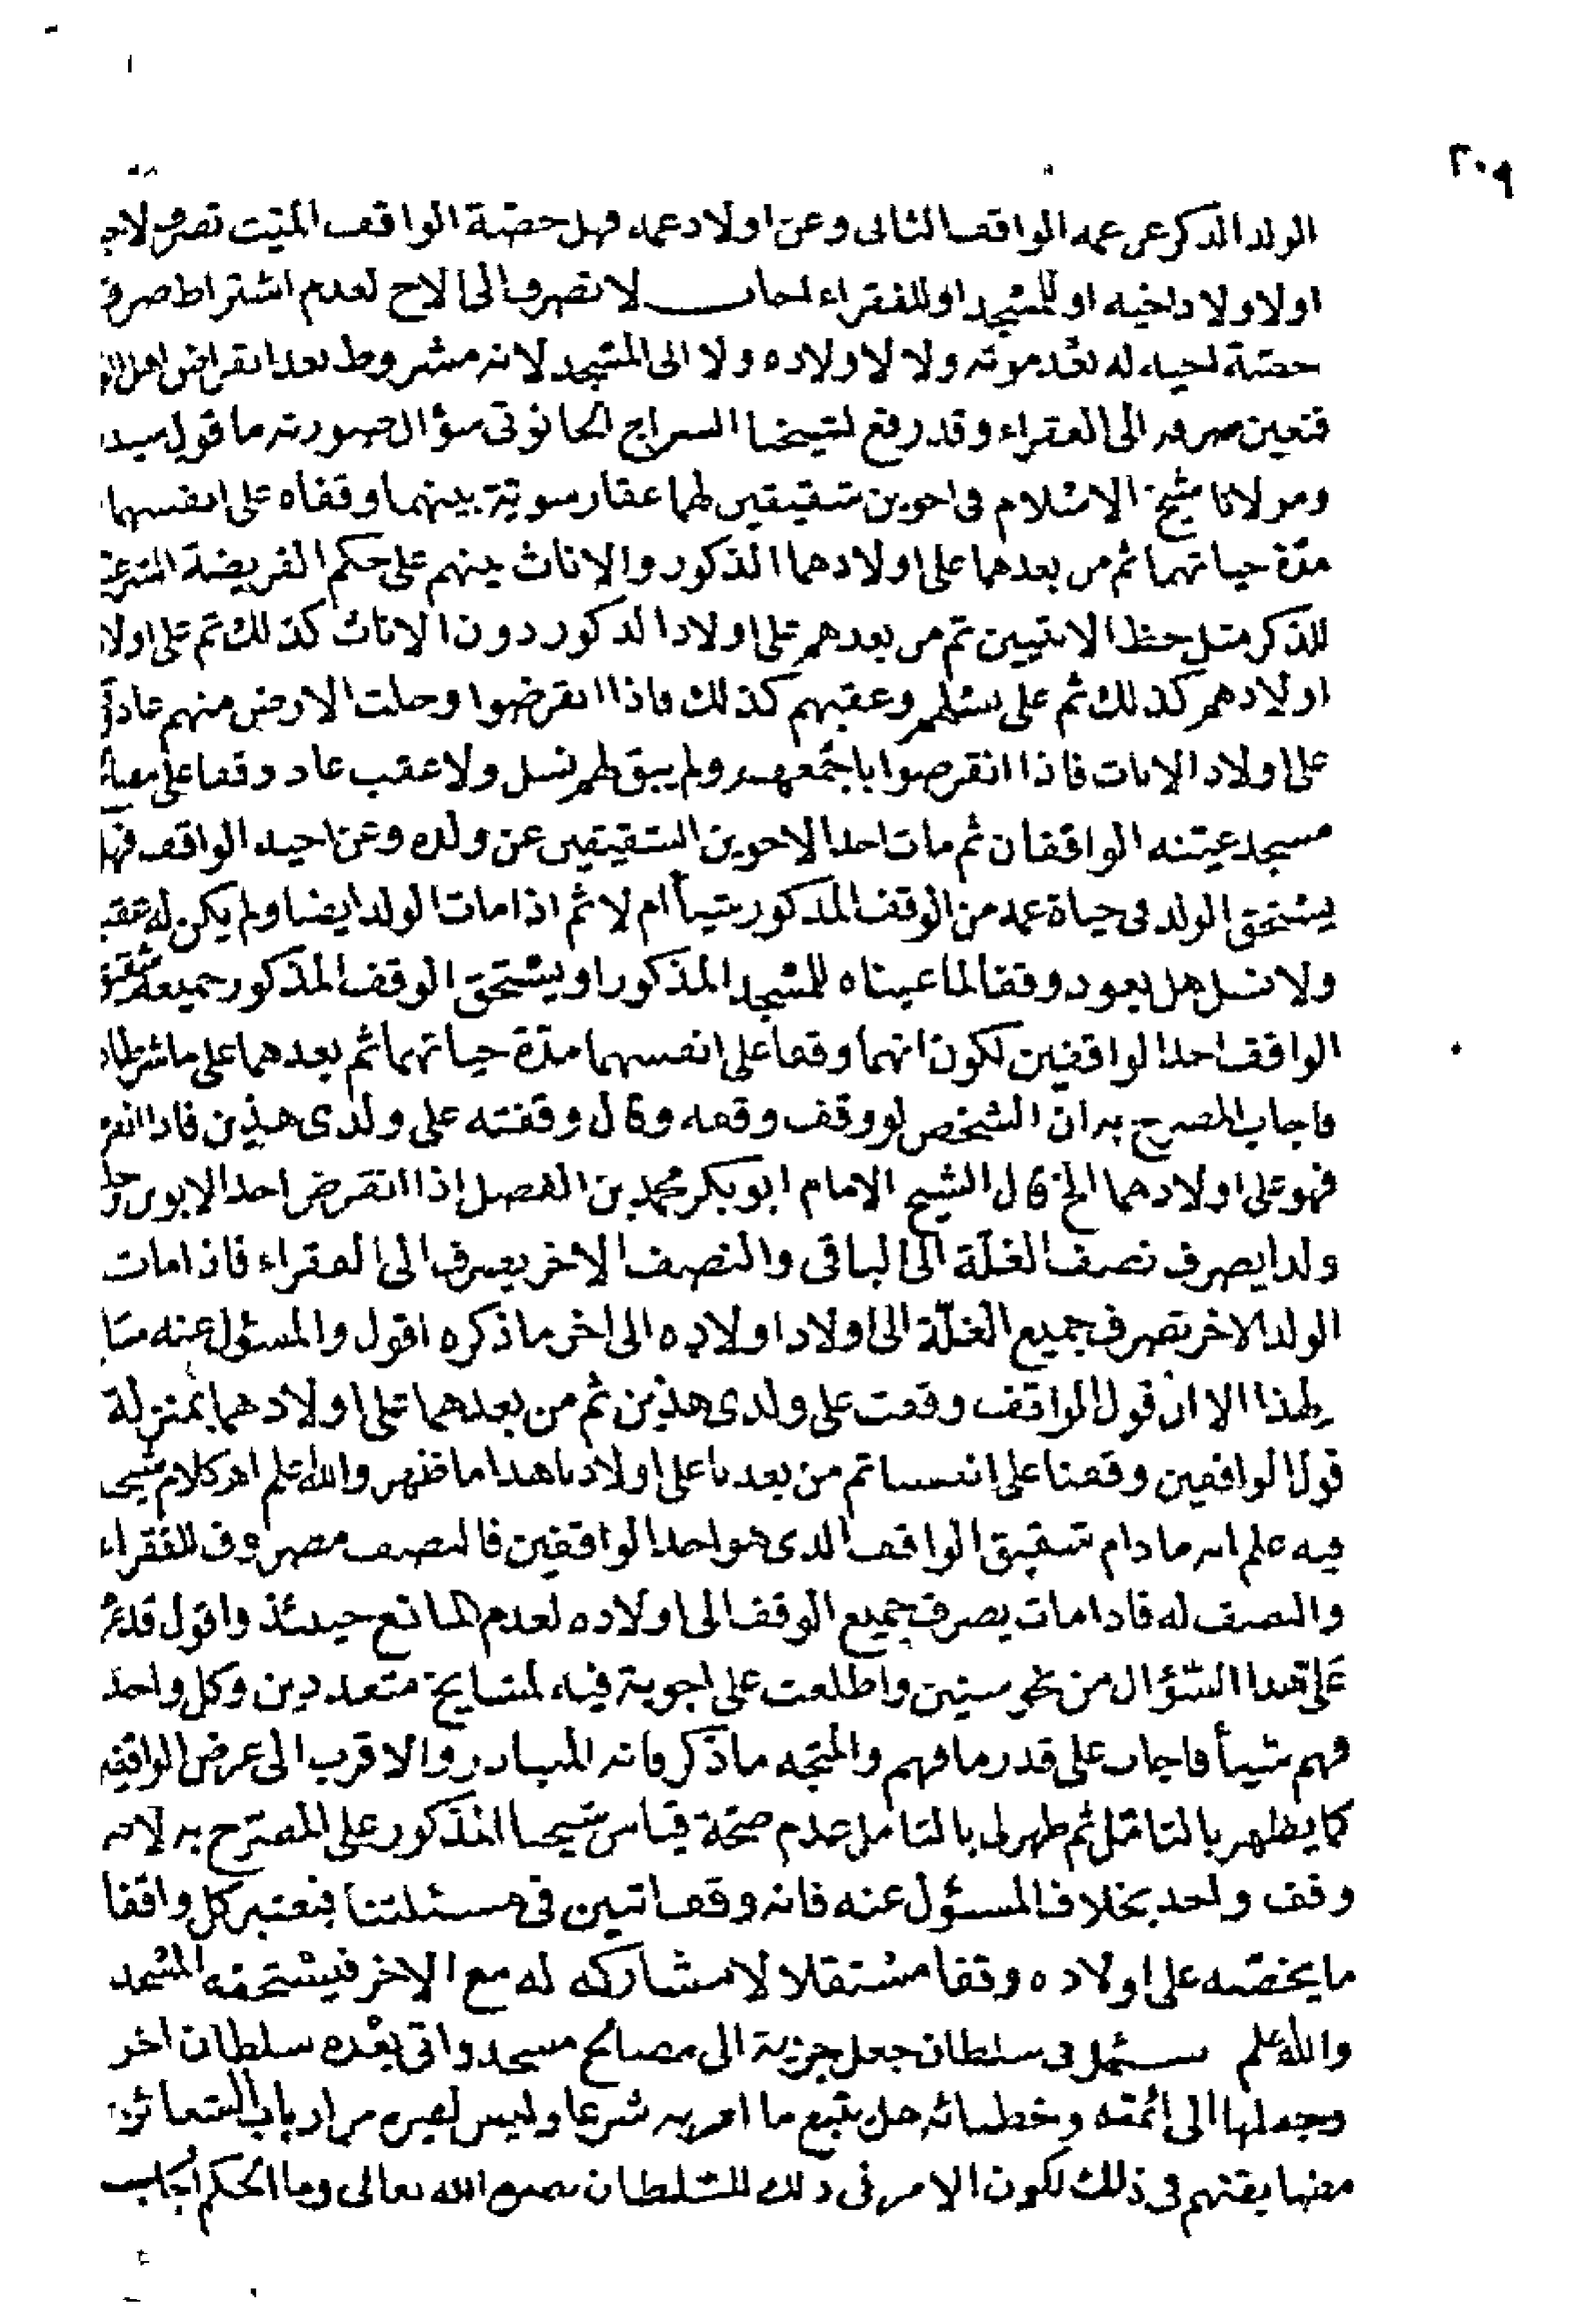 ٢٠٩
الولد الدكر عن عمه الواقف الثانى وعن اولاد عمه فهل حصّة الواقف الميّت تصرف لاخيه
اولاولاد اخيه او للمسجد او للفقراء اجاب لا تصرف الى الاخ لعدم اشتراط صرف
حصّة اخيه له بعد موته ولا لاولاده ولا الى المسجد لانه مشروط بعد انقراض اهل
فتعين صرفه الى الفقراء وقد رفع لشيخنا السراج الحانوتى سؤال صورته ما قول سيد
ومولانا شيخ الاسلام فى اخوين شقيقين لهما عقار سويّة بينهما وقفاه على انفسهما
مدّة حياتهما ثم من بعدهما على اولادهما الذكور والاناث بينهم على حكم الفريضة الشرعية
للذكر مثل حظ الانثيين ثم من بعدهم على اولاد الذكور دون الاناث كذلك ثم على اولا
اولادهم كذلك ثم على نسلهم وعقبهم كذلك فاذا انقرضوا وخلت الارض منهم عاد
على اولاد الاناث فاذا انقرضوا باجمعهم ولم يبق لهم نسل ولا عقب عاد وقفا على مصالح
مسجد عيّنه الواقفان ثم مات احد الاخوين الشقيقين عن ولده وعن اخيه الواقف فهل
يستحق الولد فى حياة عمه من الوقف المذكور شيأ ام لا ثم اذا مات الولد ايضا ولم يكن له عقب
ولا نسل هل يعود وقفا لما عيناه للمسجد المذكور او يستحق الوقف المذكور جميعه شقيق
الواقف احد الواقفين لكون انهما وقفا على انفسهما مدّة حياتهما ثم بعدهما على ما شرطاه
فاجاب المصرح به ان الشخص لو وقف وقفه وقال وقفته على ولدى هذين فاذا انقرضا
فهو على اولادهما الخ قال الشيخ الامام ابو بكر محمد بن الفضل اذا انقرض احد الابوين وخلف
ولدا يصرف نصف الغلّة الى الباقى والنصف الاخر يصرف الى الفقراء فاذا مات
الولد الاخر تصرف جميع الغلّة الى اولاد اولاده الى اخر ما ذكره اقول والمسؤل عنه مسا
لهذا الا ان قول الواقف وقفت على ولدى هذين ثم من بعدهما على اولادهما بمنزلة
قول الواقفين وقفنا على انفسنا ثم من بعدنا على اولادنا هذا ما ظهر والله اعلم اهر كلام شيخنا
فيه علم انه ما دام شقيق الواقف الذى هو احد الواقفين فالنصف مصروف للفقراء
والنصف له فاذا مات يصرف جميع الوقف الى اولاده لعدم المانع حينئذ واقول قد
على هذا السّؤال من نحو سنين واطلعت على اجوبة فيه لمشايخ متعددين وكل واحد
فهم شيأ فاجاب على قدر ما فهم والمتجه ما ذكر فانه المتبادر والاقرب الى غرض الواقفين
كما يظهر بالتامّل ثم ظهر لى بالتامل عدم صحّة قياس شيخنا المذكور على المصرّح به لانه
وقف واحد بخلاف المسؤل عنه فانه وقفا اثنين فى مسئلتنا فيعتبر كل واقفا
ما يخصّه على اولاده وقفا مستقلا لا مشاركه له مع الاخر فيستحقه المسجد
والله اعلم سئل فى سلطان جعل جزية الى مصالح مسجد واتى بعده سلطان اخر
وجعلها الى ائمته وخطبائه هل يتبع ما امر به شرعا وليس لغيره من ارباب الشعائر
مضايقتهم فى ذلك لكون الامر فى ذلك للسّلطان نصره الله تعالى وما الحكم اجاب